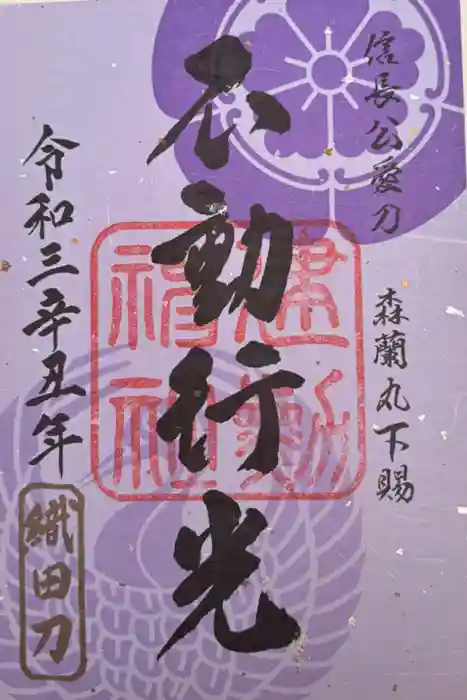 信長公愛刀
森蘭丸下賜
不動行光
建勲神社
令和三辛丑年
織田刀